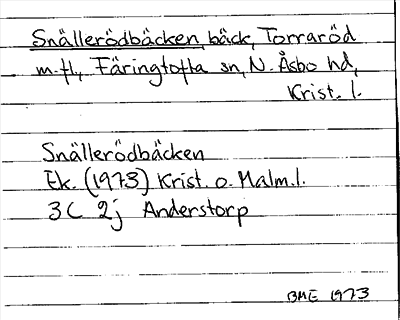 Snällerödbäcken, bäck, Torraröd
m.fl., Färingtofta sn, N. Åsbo hd,
Krist. l.
Snällerödbäcken
Ek. (1973) Krist. o. Malm.l.
3C 2j Anderstorp
BME 1973